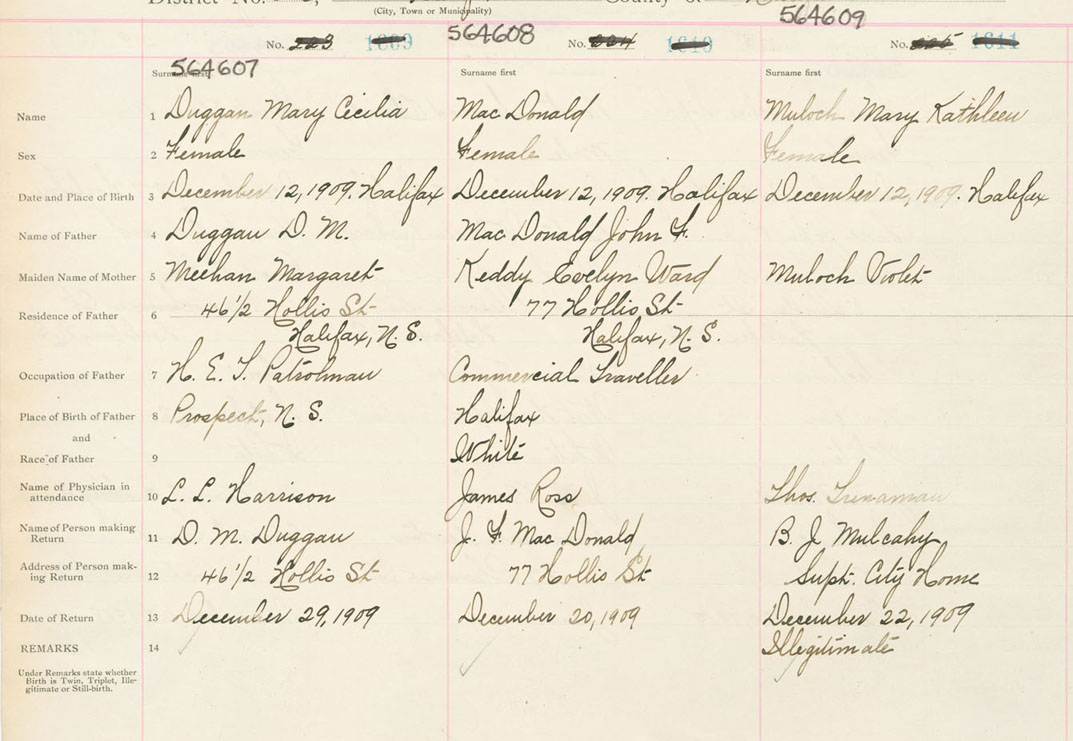 District No.
County of
(City, Town or Municipality)
564607 564608 564609
No. 223 1609 No. 224 1610 No. 225 1611
Surname first Surname first Surname first
Name 1 Duggan Mary Cecilia Mac Donald Muloch Mary Kathleen
Sex 2 Female Female Female
Date and Place of Birth 3 December 12, 1909. Halifax December 12, 1909. Halifax December 12, 1909. Halifax
Name of Father 4 Duggan D. M. Mac Donald John F.
Maiden Name of Mother 5 Meehan Margaret Keddy Evelyn Ward Muloch Violet
Residence of Father 6 46 1/2 Hollis St 77 Hollis St
Halifax, N. S. Halifax, N. S.
Occupation of Father 7 H. E. T. Patrolman Commercial Traveller
Place of Birth of Father 8 Prospect, N. S. Halifax
and
Race of Father 9 White
Name of Physician in
attendance 10 L. L. Harrison James Ross Thos. Trenaman
Name of Person making
Return 11 D. M. Duggan J. F. Mac Donald B. J. Mulcahy
Address of Person mak-
ing Return 12 46 1/2 Hollis St 77 Hollis St Supt. City Home
Date of Return 13 December 29, 1909 December 20, 1909 December 22, 1909
REMARKS 14 Illegitimate
Under Remarks state whether
Birth is Twin, Triplet, Ille-
gitimate or Still-birth.